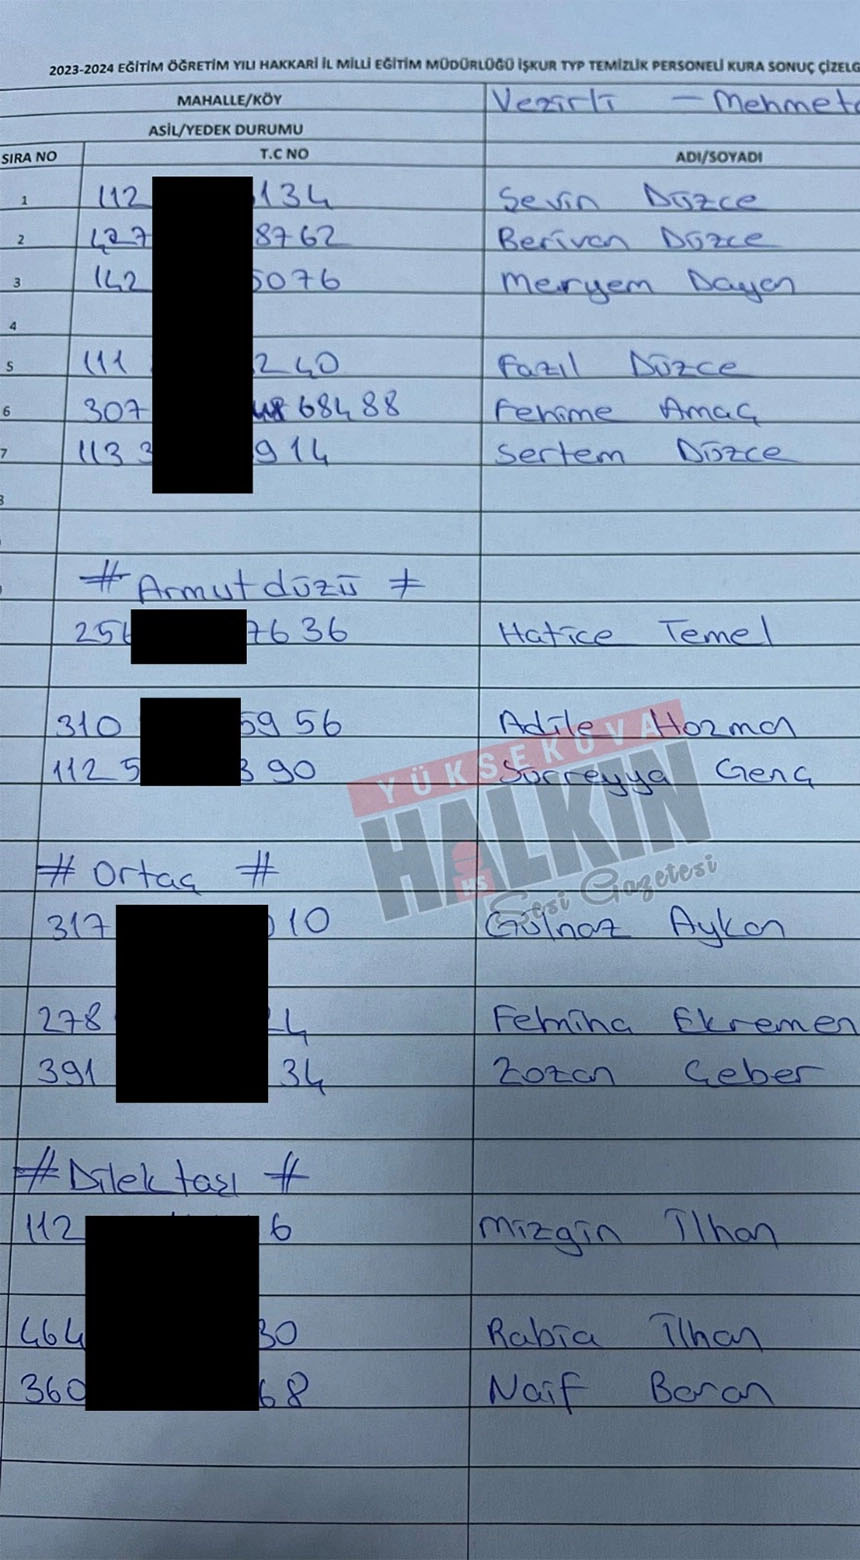 2023-2024 EĞİTİM ÖĞRETİM YILI HAKKARİ İL MİLLİ EĞİTİM MÜDÜRLÜĞÜ İŞKUR TYP TEMİZLİK PERSONELİ KURA SONUÇ ÇİZELG
MAHALLE/KÖY Vezirli - Mehmet
ASİL/YEDEK DURUMU
SIRA NO T.C NO ADI/SOYADI
1 112 134 Sevin Düzce
2 427 8762 Berivan Düzce
3 142 5076 Meryem Dayan
4
5 111 240 Fazıl Düzce
6 307 68488 Fehime Amaç
7 113 3 914 Sertem Düzce
# Armutdüzü #
256 7636 Hatice Temel
310 5956 Adile Hozman
112 5 390 Sürreyya Genç
YÜKSEKOVA
HALKIN
HS
Sesi Gazetesi
# Ortaç #
317 010 Gülnaz Aykan
278 4 Femina Ekremen
391 34 Zozan Geber
# Dilektaşı #
112 6 Mizgin İlhan
464 30 Rabia İlhan
360 68 Naif Baran